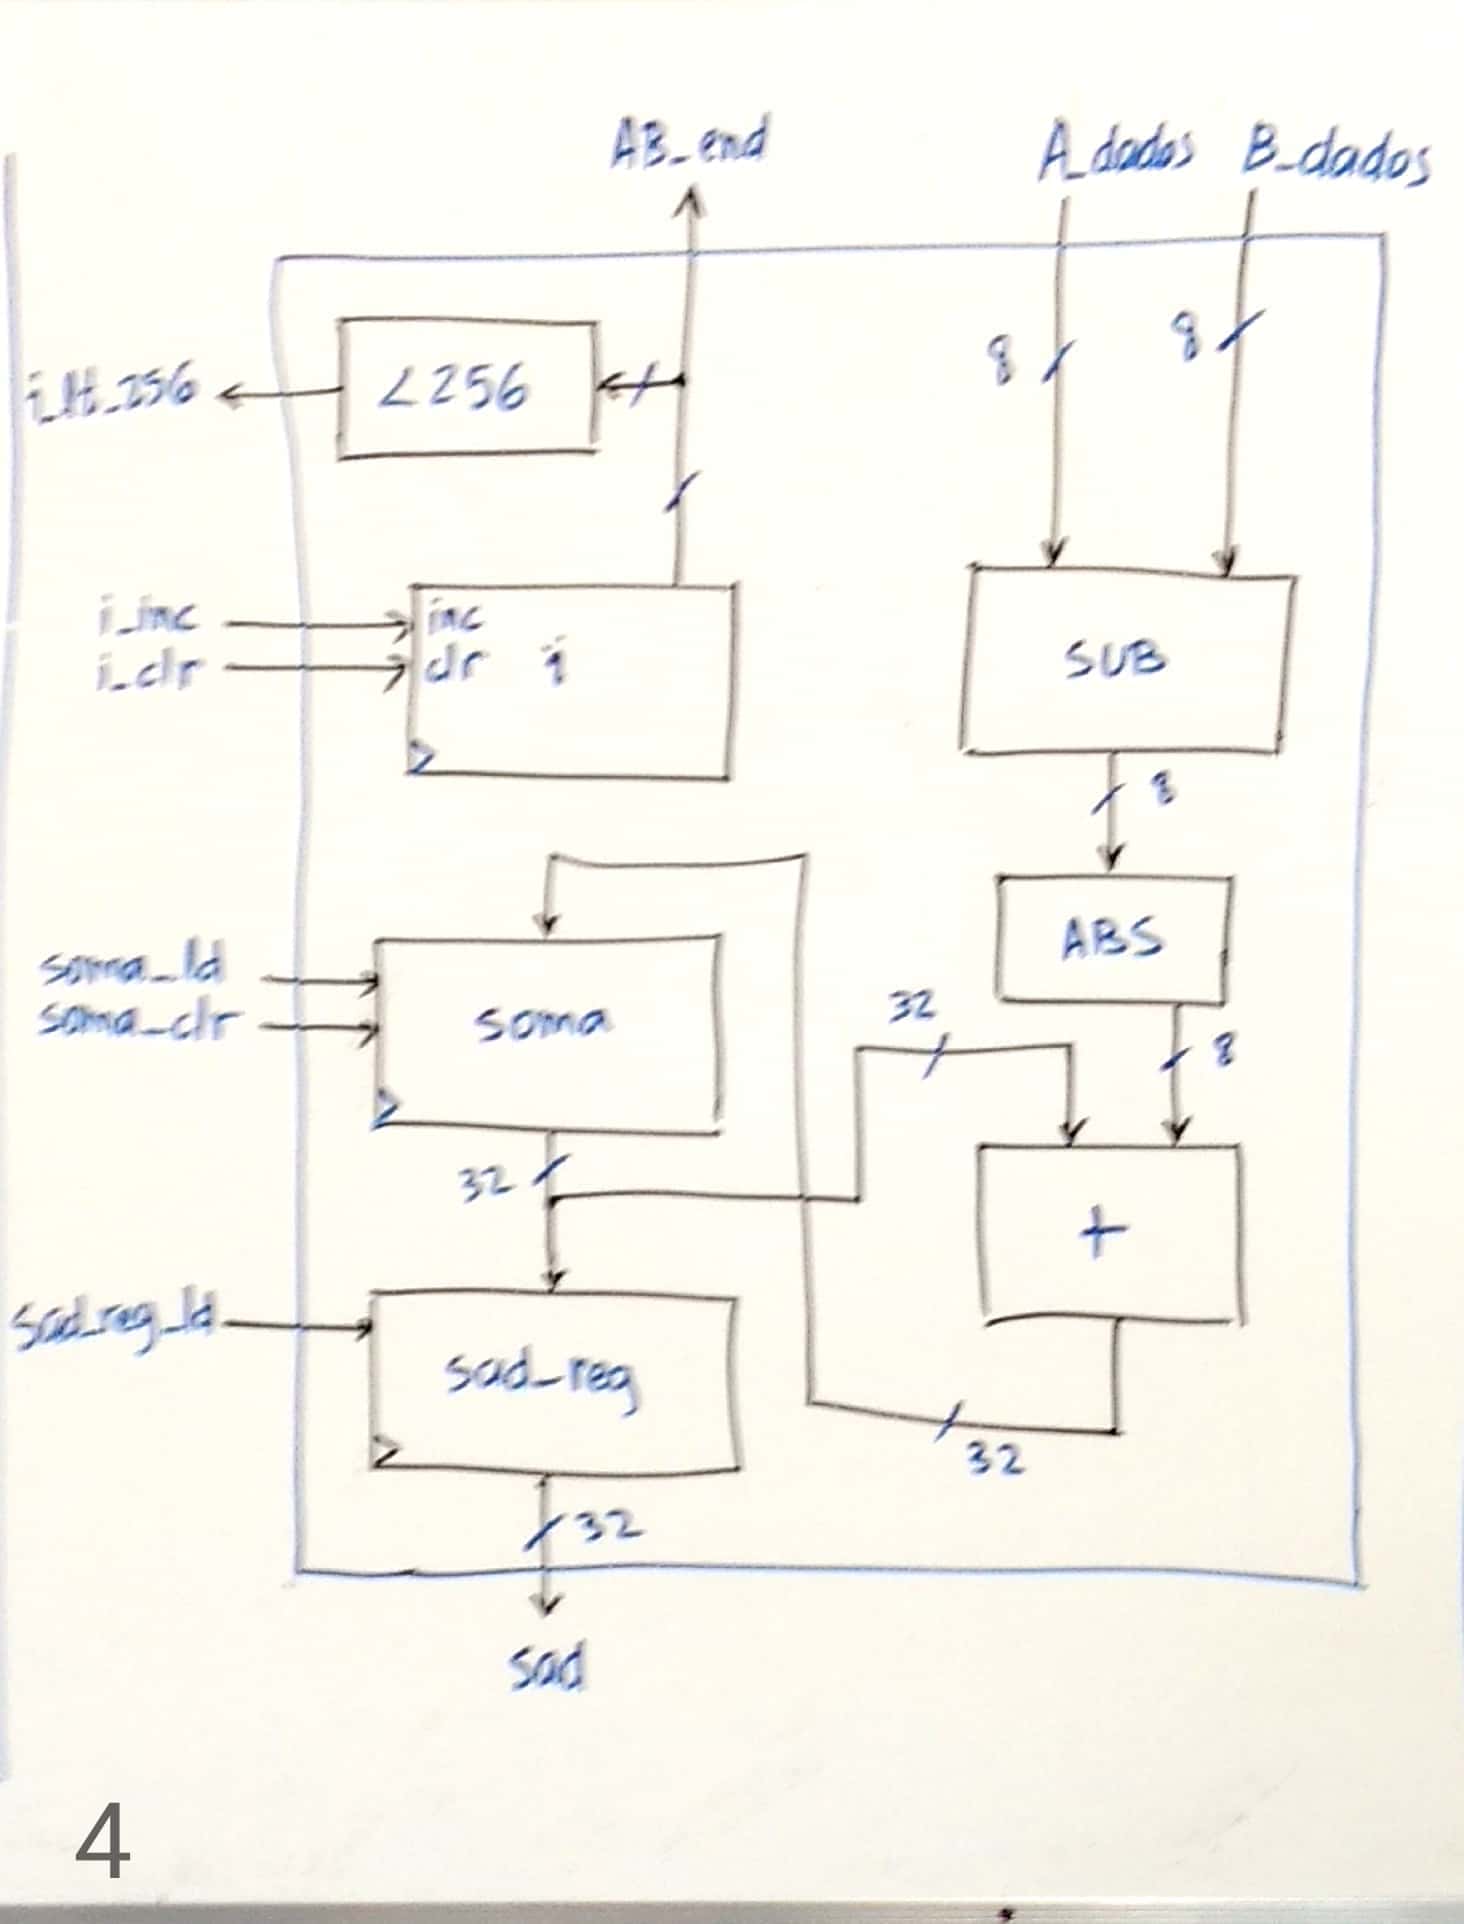 AB_end
A_dados B_dados
8
8
<256
i_lt_256
i_inc
inc
i_clr
clr i
SUB
8
ABS
soma_ld
soma_clr
soma
32
8
32
+
sad_reg_ld
sad_reg
32
32
sad
4